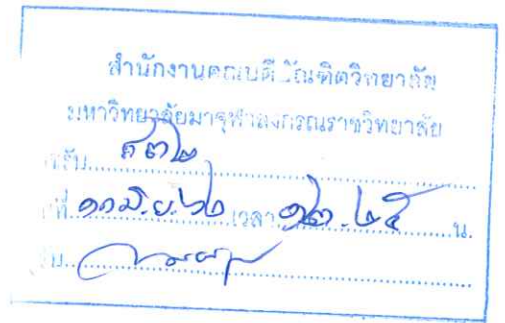 สำนักงานคณบดีบัณฑิตวิทยาลัย
มหาวิทยาลัยมหาจุฬาลงกรณราชวิทยาลัย
รับ
ที่ ๑๐ มิ.ย. ๖๒ เวลา ๑๒.๒๕ น.